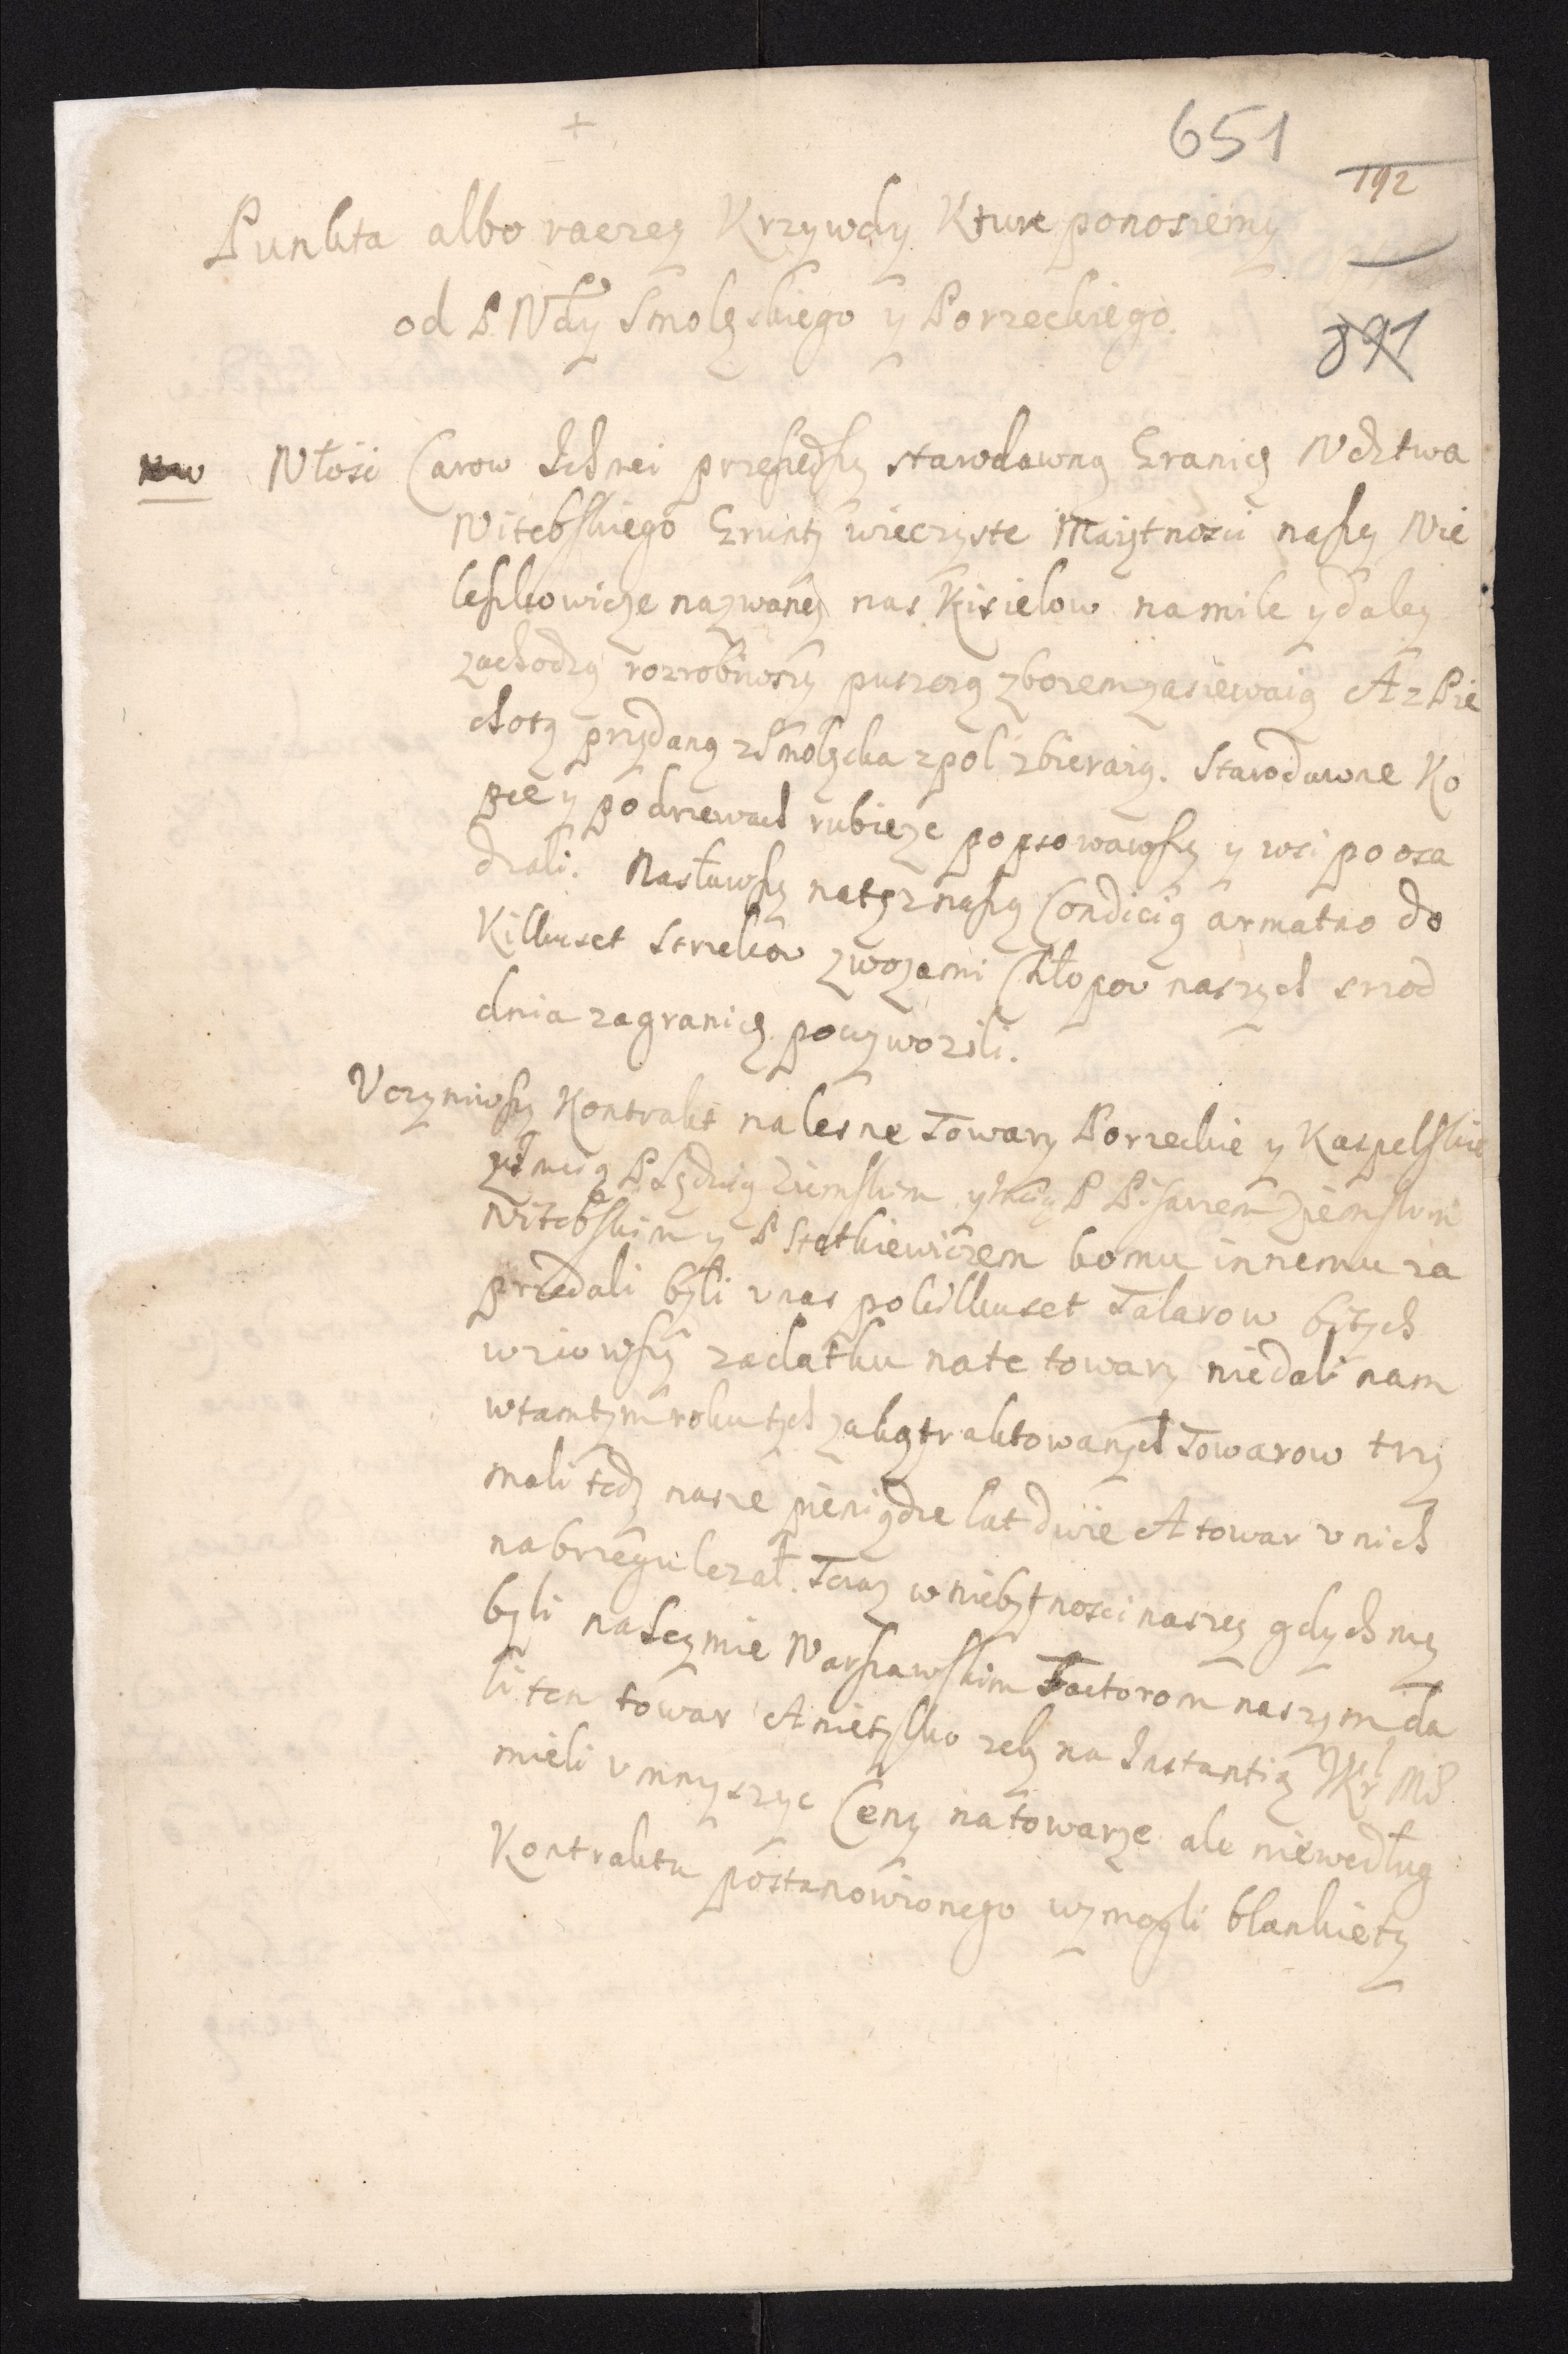 651
192
Punkta albo raczey Krzywdy Kture ponosiemy
od P. Wdy Smolęskiego y Porzeckiego.
891
Włosci Carow Ichmci przeszedszy starodawną Granicę Wdztwa
Witebskiego Grunty wieczyste Maiętnosci naszey Wie
leszkowicze nazwaney nas Kisielow na mile y daley
zachodzą rozrobiwszy puszczą zbozem zasiewaią A z Pie
choty przydaną z Smolęcka z pol zbieraią. Starodawne Ko
pce y po drzewach rubieze popsowawszy y wsi poosa
dzali. Nasławszy na tęz naszą Condicią armatno do
Kilkuset Strzelcow z wozami Chłopow naszych srzod
dnia za granicę powywozili.
Uczyniwszy Kontrakt na lesne Towary Porzeckie y Kaspelskie
z Jmcią P Sędzią Ziemskim y Jmcią P Pisarzem Ziemskim
Witebskim y P Statkiewiczem komu innemu za
przedali byli u nas po kilkuset Talarow bitych
wziowszy zadatku na te towary nie dali nam
w tamtym roku tych zakątraktowanych Towarow trzy
mali tedy nasze pieniądze lat dwie A towar u nich
na brzegu lezał. Teraz w niebytnosci naszey gdychmy
byli na Seymie Warszawskim Factorom naszym da
li ten towar A nie tylko zeby na Instantią JKr Mc
mieli umnyszyc Ceny na towarze ale nie według
Kontraktu postanowionego wymogli blankiety